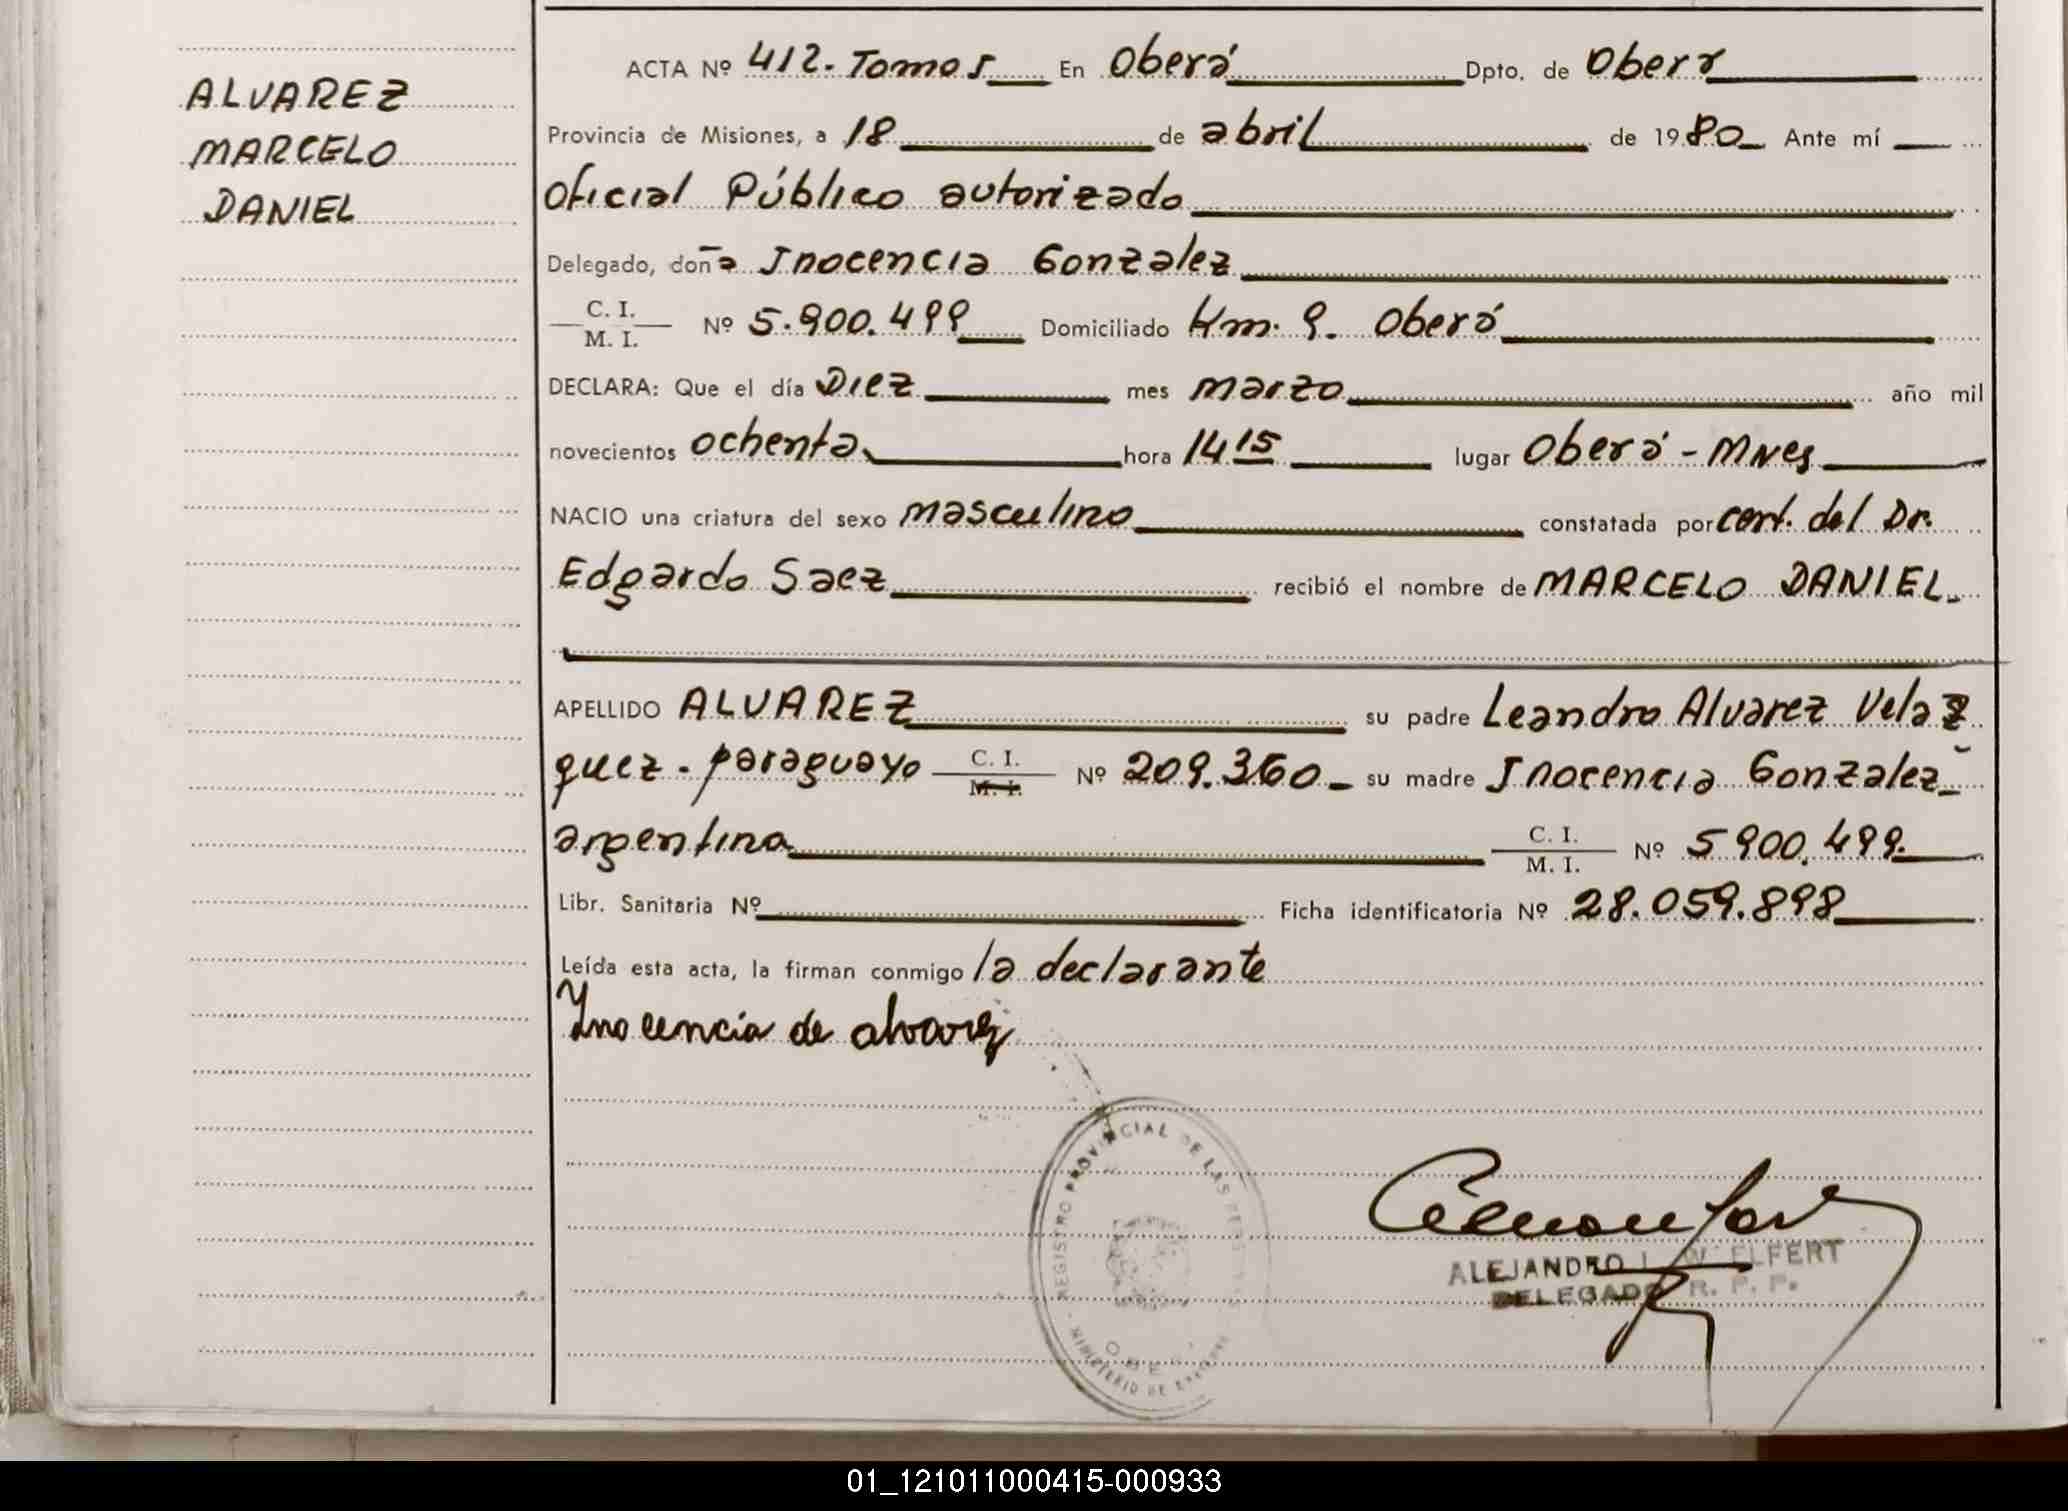 ALVAREZ
MARCELO
DANIEL
ACTA Nº 412. Tomo 5 En Oberá Dpto. de Oberá
Provincia de Misiones, a 18 de abril de 1980 Ante mí
Oficial Público autorizado
Delegado, doña Inocencia Gonzalez
C. I.
M. I. Nº 5.900.499 Domiciliado Km. 9. Oberá
DECLARA: Que el día Diez mes marzo año mil
novecientos ochenta hora 14 15 lugar Oberá - Mnes
NACIO una criatura del sexo masculino constatada por cert. del Dr.
Edgardo Saez recibió el nombre de MARCELO DANIEL.
APELLIDO ALVAREZ su padre Leandro Alvarez Velaz
quez - paraguayo C. I. M. I. Nº 209.360 su madre Inocencia Gonzalez
argentina C. I. M. I. Nº 5900.499.
Libr. Sanitaria Nº Ficha identificatoria Nº 28.059.898
Leída esta acta, la firman conmigo la declarante
Inocencia de alvarez
REGISTRO PROVINCIAL DE LAS
MINISTERIO DE
ALEJANDRO
DELEGADO R. P. P.
01_121011000415-000933